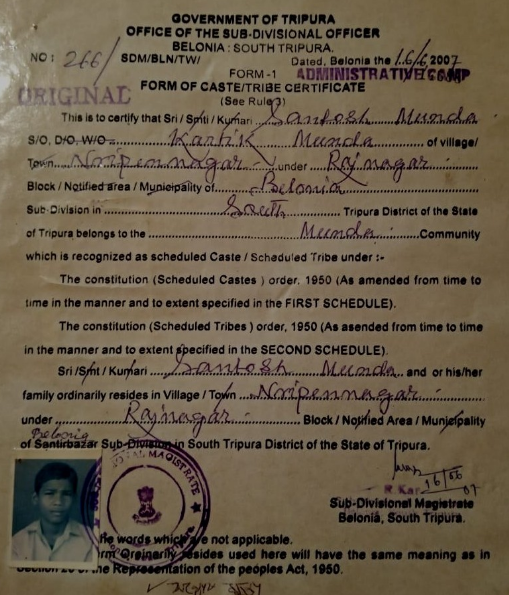 GOVERNMENT OF TRIPURA
OFFICE OF THE SUB-DIVISIONAL OFFICER
BELONIA : SOUTH TRIPURA.
NO : 266/ SDM/BLN/TW/ Dated, Belonia the 16/6/2007
FORM -1 ADMINISTRATIVE CAMP
ORIGINAL FORM OF CASTE/TRIBE CERTIFICATE
(See Rule 3)
This is to certify that Sri / Smti / Kumari Santosh Munda
S/O, D/O, W/O Kartik Munda of village/
Town Nripennagar under Rajnagar
Block / Notified area / Municipality of Belonia
Sub-Division in South Tripura District of the State
of Tripura belongs to the Munda Community
which is recognized as scheduled Caste / Scheduled Tribe under :-
The constitution (Scheduled Castes) order, 1950 (As amended from time to
time in the manner and to extent specified in the FIRST SCHEDULE).
The constitution (Scheduled Tribes) order, 1950 (As asended from time to time
in the manner and to extent specified in the SECOND SCHEDULE).
Sri /Smt / Kumari Santosh Munda and or his/her
family ordinarily resides in Village / Town Nripennagar
under Rajnagar Block / Notified Area / Municipality
Belonia
of Santirbazar Sub-Division in South Tripura District of the State of Tripura.
16/06/07
R. Kar
Sub-Divisional Magistrate
Belonia, South Tripura.
MAGISTRATE
he words which are not applicable.
rm Orginerily resides used here will have the same meaning as in
Section 20 of the Representation of the peoples Act, 1950.